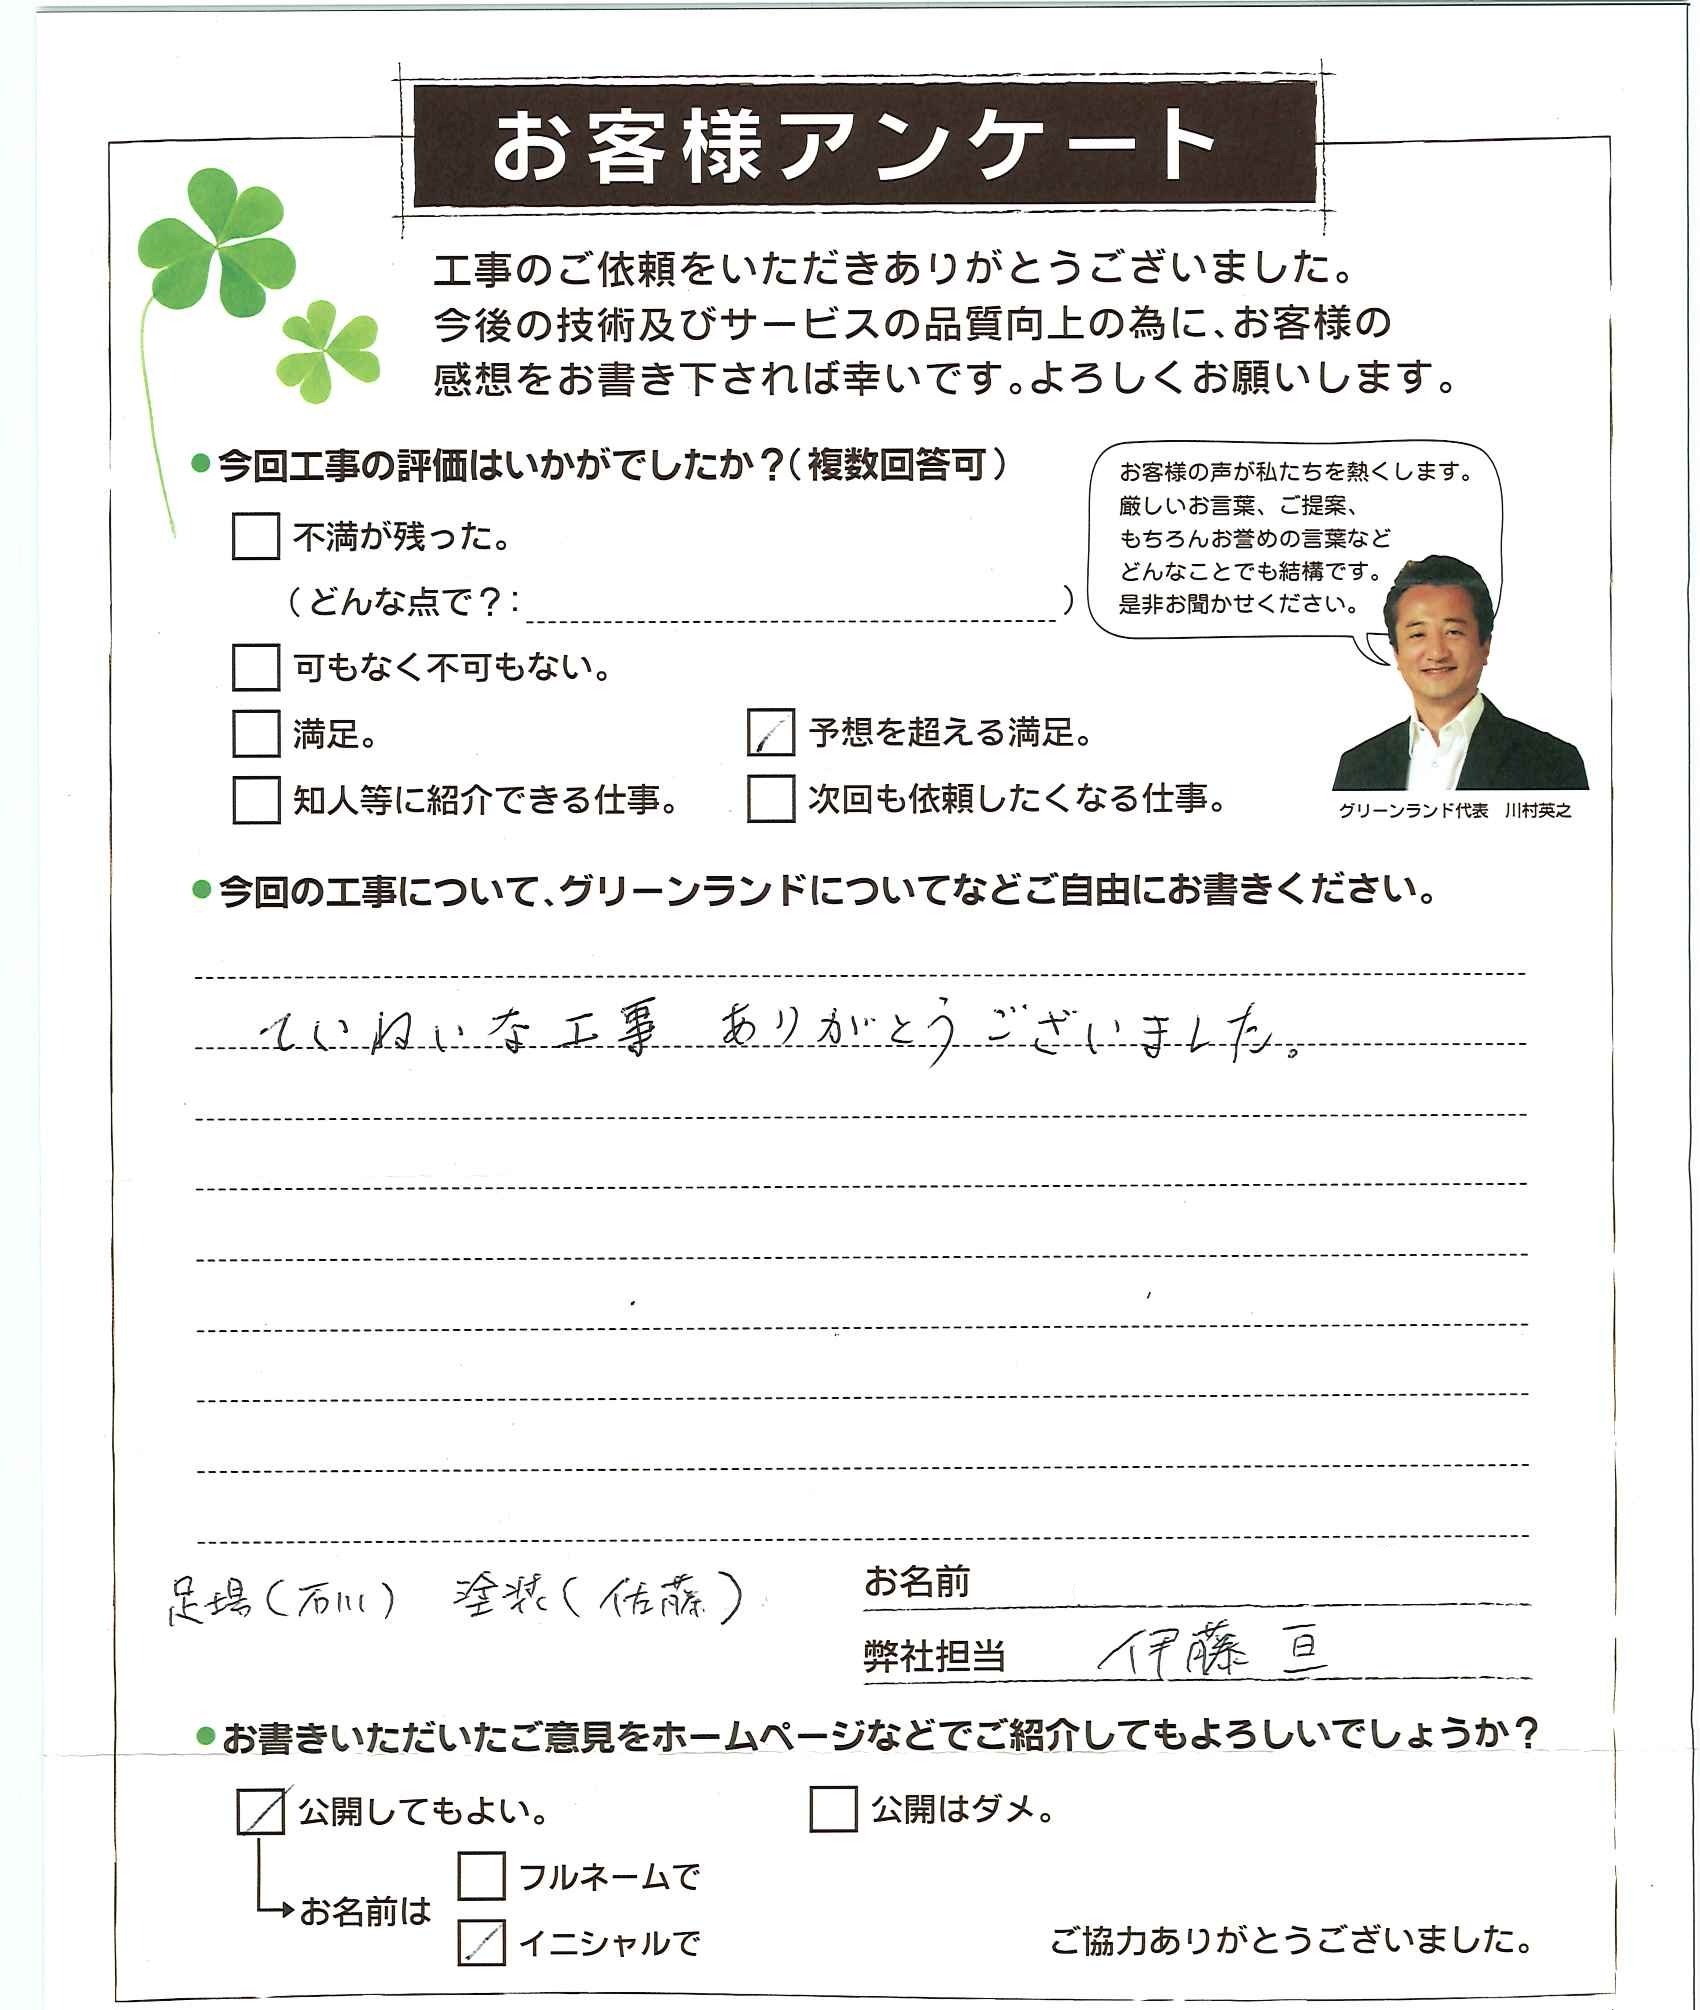 お客様アンケート
工事のご依頼をいただきありがとうございました。
今後の技術及びサービスの品質向上の為に、お客様の
感想をお書き下されば幸いです。よろしくお願いします。
●今回工事の評価はいかがでしたか？（複数回答可）
不満が残った。
（どんな点で？： ）
可もなく不可もない。
満足。 予想を超える満足。
知人等に紹介できる仕事。 次回も依頼したくなる仕事。
お客様の声が私たちを熱くします。
厳しいお言葉、ご提案、
もちろんお誉めの言葉など
どんなことでも結構です。
是非お聞かせください。
グリーンランド代表 川村英之
●今回の工事について、グリーンランドについてなどご自由にお書きください。
ていねいな工事 ありがとうございました。
足場（石川） 塗装（佐藤）
お名前
弊社担当 伊藤 亘
●お書きいただいたご意見をホームページなどでご紹介してもよろしいでしょうか？
公開してもよい。 公開はダメ。
お名前は
フルネームで
イニシャルで
ご協力ありがとうございました。